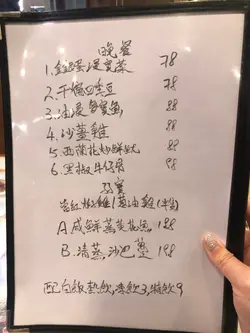 晚餐
1.金銀蛋浸寶菜 78
2.干煸四季豆 78
3.油浸多寶魚 88
4.沙薑雞 88
5.西蘭花炒鮮魷 88
6.黑椒牛仔骨 98
孖寶
(半隻)
A.咸鮮蒸黃花魚 188
B.清蒸沙巴躉 198
配白飯,熱飲,凍飲3,特飲9